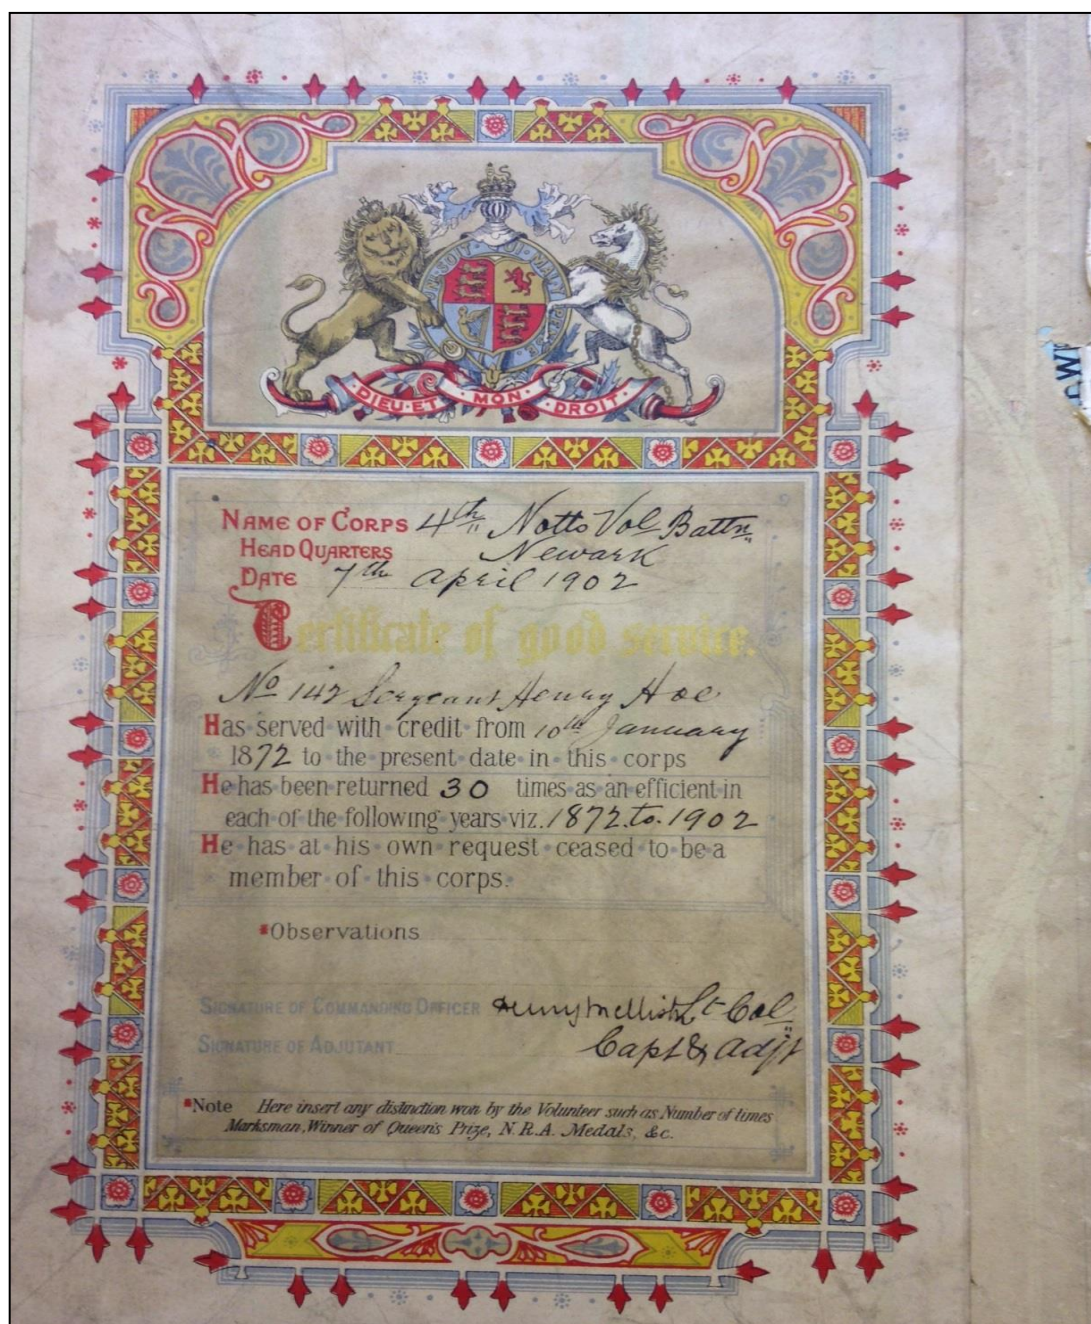 HONI SOIT QUI MAL Y PENSE
DIEU·ET·MON·DROIT·
NAME OF CORPS 4th Notts Vol Battn
HEAD QUARTERS Newark
DATE 7th April 1902
Certificate of good service.
No 142 Sergeant Henry Hoe
Has·served·with·credit·from 10th January
1872 to·the·present·date·in·this·corps
He·has·been·returned 30 times·as·an·efficient·in
each·of·the·following·years·viz. 1872.to.1902
He·has·at·his·own·request·ceased·to·be·a
member·of·this·corps.
*Observations
SIGNATURE OF COMMANDING OFFICER Henry Mellish Lt Col
SIGNATURE OF ADJUTANT Capt & Adjt
*Note Here insert any distinction won by the Volunteer such as Number of times
Marksman, Winner of Queen's Prize, N.R.A. Medals, &c.